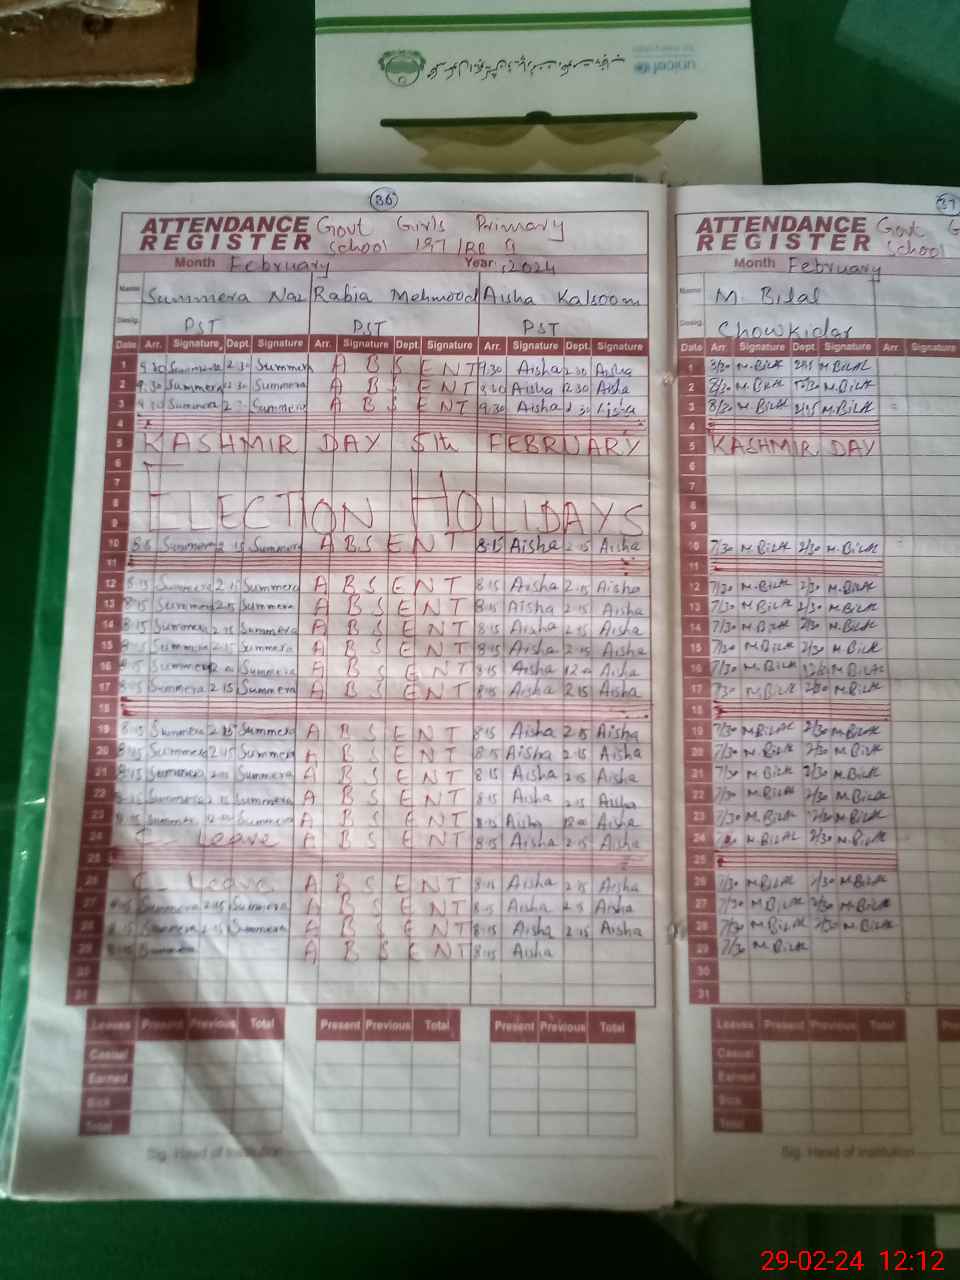 unicef
36
ATTENDANCE REGISTER Govt Girls Primary School 187/RB 9
Month February Year, 2024
Name Summera Naz Rabia Mehmood Aisha Kalsoom
Desig. PST PST PST
Date Arr. Signature Dept. Signature Arr. Signature Dept. Signature Arr. Signature Dept. Signature
1 9.30 Summera 2.30 Summera ABSENT 9.30 Aisha 2.30 Aisha
2 9.30 Summera 12.30 Summera ABSENT 9.30 Aisha 12.30 Aisha
3 9.30 Summera 2.30 Summera ABSENT 9.30 Aisha 2.30 Aisha
4
5 KASHMIR DAY 5th FEBRUARY
6
7
8 ELECTION HOLIDAYS
9
10 8.15 Summera 2.15 Summera ABSENT 8.15 Aisha 2.15 Aisha
11
12 8.15 Summera 2.15 Summera ABSENT 8.15 Aisha 2.15 Aisha
13 8.15 Summera 2.15 Summera ABSENT 8.15 Aisha 2.15 Aisha
14 8.15 Summera 2.15 Summera ABSENT 8.15 Aisha 2.15 Aisha
15 8.15 Summera 2.15 Summera ABSENT 8.15 Aisha 2.15 Aisha
16 8.15 Summera 12.00 Summera ABSENT 8.15 Aisha 12.00 Aisha
17 8.15 Summera 2.15 Summera ABSENT 8.15 Aisha 2.15 Aisha
18
19 8.15 Summera 2.15 Summera ABSENT 8.15 Aisha 2.15 Aisha
20 8.15 Summera 2.15 Summera ABSENT 8.15 Aisha 2.15 Aisha
21 8.15 Summera 2.15 Summera ABSENT 8.15 Aisha 2.15 Aisha
22 8.15 Summera 2.15 Summera ABSENT 8.15 Aisha 2.15 Aisha
23 8.15 Summera 12.00 Summera ABSENT 8.15 Aisha 12.00 Aisha
24 C_ Leave ABSENT 8.15 Aisha 2.15 Aisha
25
26 C_ Leave ABSENT 8.15 Aisha 2.15 Aisha
27 8.15 Summera 2.15 Summera ABSENT 8.15 Aisha 2.15 Aisha
28 8.15 Summera 2.15 Summera ABSENT 8.15 Aisha 2.15 Aisha
29 8.15 Summera ABSENT 8.15 Aisha
30
31
Leaves Present Previous Total Present Previous Total Present Previous Total
Casual
Earned
Sick
Total
Sig. Head of Institution
37
ATTENDANCE REGISTER Govt G
School
Month February
Name M. Bilal
Desig. Chowkidar
Date Arr. Signature Dept. Signature Arr. Signature
1 8/30 M.BiLAL 2/15 M.BiLAL
2 8/30 M.BiLAL 12/30 M.BiLAL
3 8/30 M.BiLAL 2/15 M.BiLAL
4
5 KASHMIR DAY
6
7
8
9
10 7/30 M.BiLAL 2/30 M.BiLAL
11
12 7/30 M.BiLAL 2/30 M.BiLAL
13 7/30 M.BiLAL 2/30 M.BiLAL
14 7/30 M.BiLAL 2/30 M.BiLAL
15 7/30 M.BiLAL 2/30 M.BiLAL
16 7/30 M.BiLAL M.BiLAL
17 7/30 M.BiLAL 2/30 M.BiLAL
18
19 7/30 M.BiLAL 2/30 M.BiLAL
20 7/30 M.BiLAL 2/30 M.BiLAL
21 7/30 M.BiLAL 2/30 M.BiLAL
22 7/30 M.BiLAL 2/30 M.BiLAL
23 7/30 M.BiLAL M.BiLAL
24 M.BiLAL 2/30 M.BiLAL
25
26 7/30 M.BiLAL 2/30 M.BiLAL
27 7/30 M.BiLAL 2/30 M.BiLAL
28 7/30 M.BiLAL 2/30 M.BiLAL
29 7/30 M.BiLAL
30
31
Leaves Present Previous Total
Casual
Earned
Sick
Total
Sig. Head of Institution
29-02-24 12:12